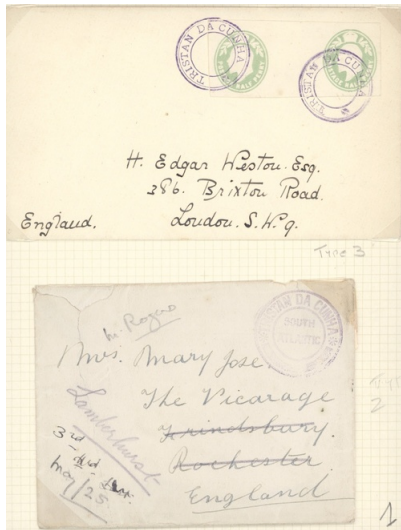 TRISTAN DA CUNHA
TRISTAN DA CUNHA
HALF PENNY
H. Edgar Weston. Esq.
386. Brixton Road.
England. London. S.W.9.
Type 3
TRISTAN DA CUNHA
SOUTH
ATLANTIC
Mr. Rogers
Mrs. Mary Jose
The Vicarage
Frindsbury.
Rochester.
England
Lamberhurst
3rd
May/25
2
1